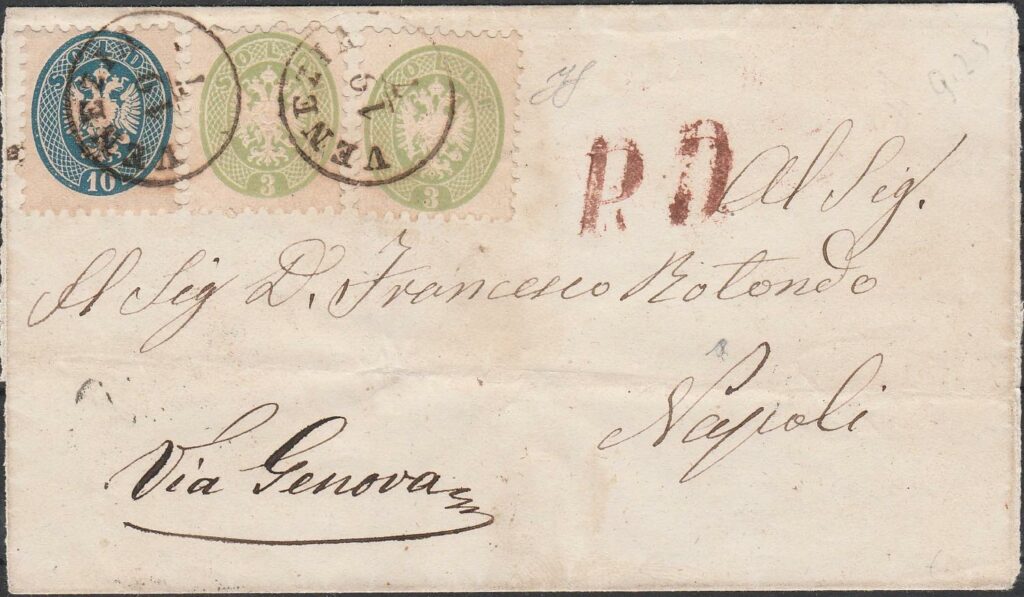 SOLDI 10
SOLDI 3
SOLDI 3
VENEZIA
VENEZIA
P.D.
Al Sig.
Al Sig D. Francesco Rotondo
Napoli
Via Genova
9.25